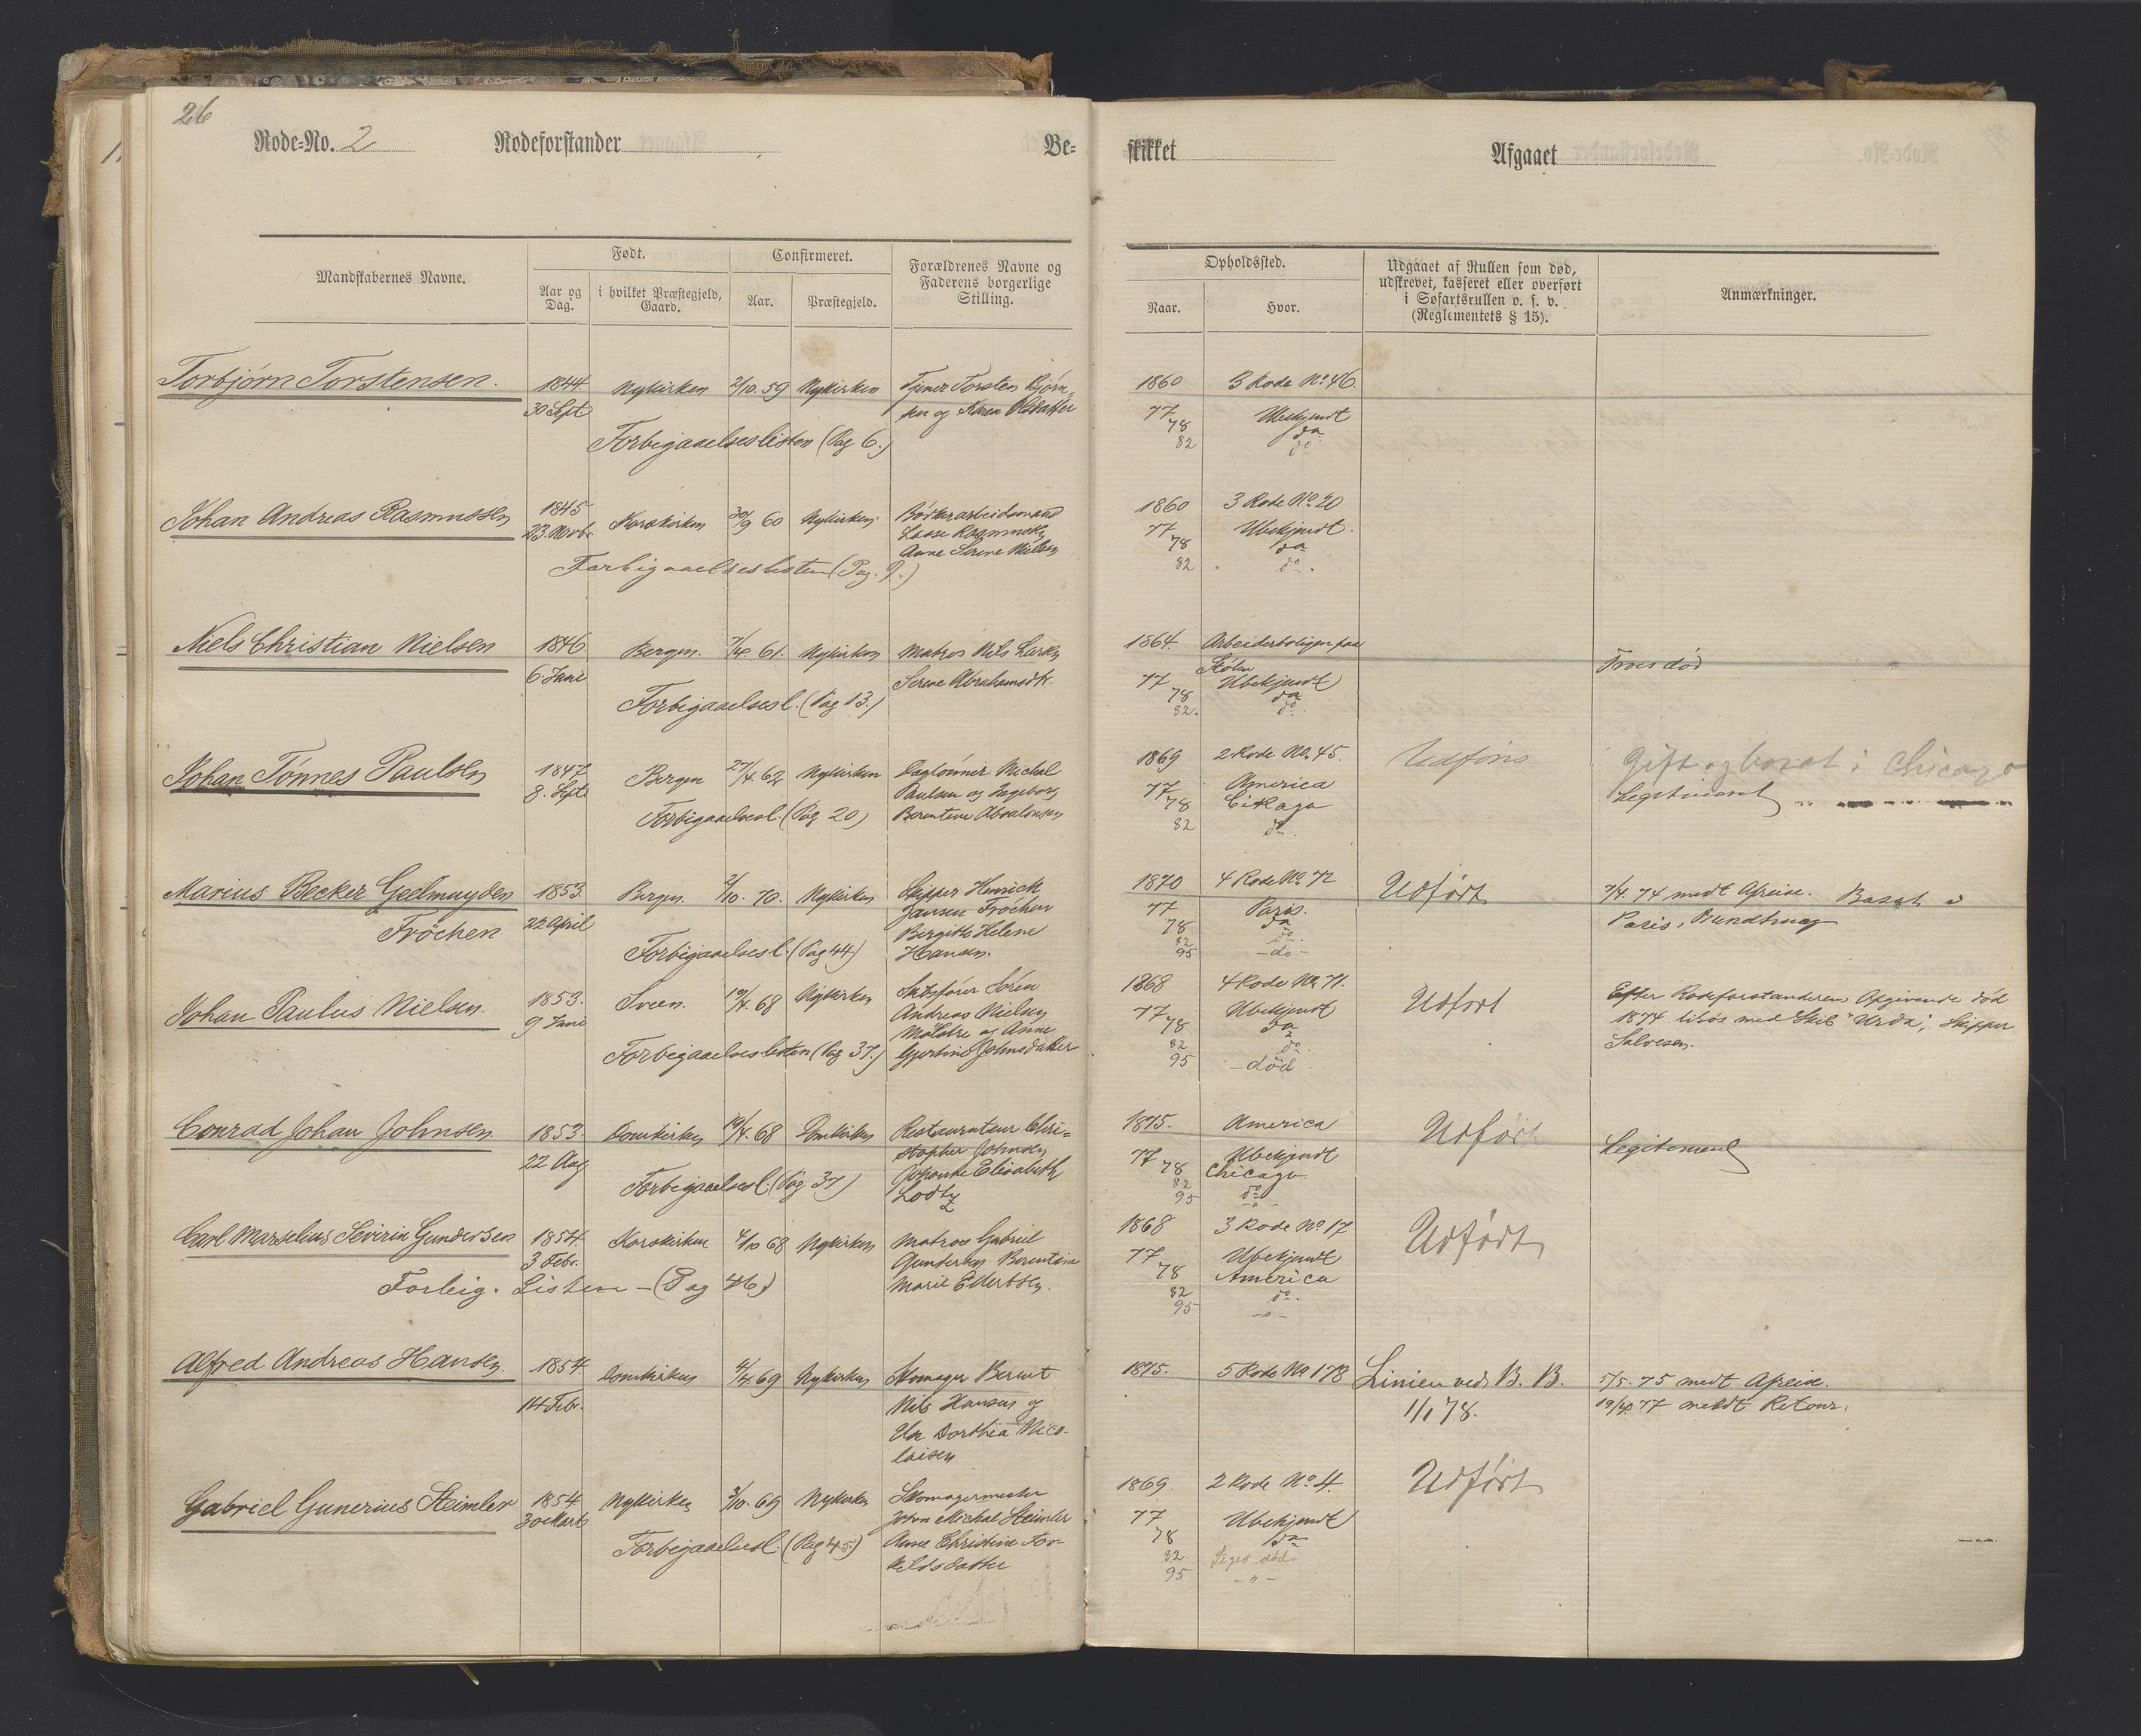 26
Rode-No. 2 Rodeforstander Be-
skikket Afgaaet
Mandskabernes Navne.
Født.
Aar og Dag.
i hvilket Præstegjeld, Gaard.
Confirmeret.
Aar.
Præstegjeld.
Forældrenes Navne og
Faderens borgerlige
Stilling.
Opholdssted.
Naar.
Hvor.
Udgaaet af Rullen som død,
udskrevet, kasseret eller overført
i Søfartsrullen o. s. v.
(Reglementets § 15).
Anmærkninger.
Torbjørn Torstensen. 1844 Nykirken 2/10. 59 Nykirken Tjener Torsten Bjørn- 1860 3 Rode No. 46.
30 Sept sen og Karen Olsdatter 77 Ubekjendt
Forbigaaelseslisten (Pag 6.) 78 do
82 do
Johan Andreas Rasmussen 1845 Korskirken 30/9 60 Nykirken Bødkerarbeidsmand 1860 3 Rode No. 20
23. Novbr Lasse Rasmussen 77 Ubekjendt.
Anne Serene Nielsen 78 do
Forbigaaelseslisten (Pag. 9.) 82 do.
Niels Christian Nielsen 1846 Bergen. 7/4. 61. Nykirken Matros Nils Larsen 1864. Arbeiderboligen paa
6. Juni Serene Abrahamsdtr. Stølen Troes død
Forbigaaelsesl. (Pag 13.) 77 Ubekjendt
78 do
82. do.
Johan Tönnes Paulsen 1847 Bergen 27/4. 62 Nykirken Daglönner Michal 1869 2 Rode No. 45. Udføres Gift og bosat i Chicago
8. Sept Paulsen og Ingeborg 77 America Legitimeret
Forbigaaelsesl. (Pag 20) Berentine Absalonsen 78 Cikago
82 do.
Marius Becker Geelmuyden 1853. Bergen. 2/10. 70. Nykirken Skipper Henrich 1870 4 Rode No. 72 Udført 7/4. 74 medt Afreise. Bosat i
Fröchen 22 April Jansen Fröchen 77 Paris. Paris,
Birgitte Helene 78 do
Forbigaaelsesl. (Pag 44) Hansen. 82 do.
95 -do-
Johan Paulus Nielsen. 1853. Sveen. 19/4. 68 Nykirken Skibsfører Sören 1868 4 Rode No. 71. Udført Efter Rodeforstanderens Opgivende död
9 Juni Andreas Nielsen 77 Ubekjendt 1874 tilsøs med Skib "Urda", Skipper
og Anne 78 do Salvesen.
Forbigaaelseslisten (Pag 37.) Gjertine Johnsdatter 82 do
95 -död
Conrad Johan Johnsen. 1853. Domkirken 19/4. 68 Domkirken Restaurateur Chri- 1875. America Udført Legitimeret
22 Aug stopher Johnsen 77 Ubekjendt
Johanne Elisabeth 78 Chicago
Forbigaaelsesl. (Pag 37) Lodtz 82 do
95 -"-
Carl Marselius Severin Gundersen 1854 Korskirken 4/10 68 Nykirken Matros Gabriel 1868 3 Rode No. 17 Udført
3 Febr. Gundersen Berentine 77 Ubekjendt
Forbig. Listen - (Pag 46) Marie Ellertsen. 78 America
82 do.
95 -"-
Alfred Andreas Hansen. 1854. Domkirken 4/4. 69 Nykirken Skomager Berent 1875. 5 Rode No. 178 Linien ved B. B. 5/5. 75 medt Afreise.
14 Febr. Nils Hansen og 1/1 78. 19/4. 77 meldt Retour.
Dorthea Nico-
laisen
Gabriel Gunerius Steimler 1854 Nykirken 3/10. 69 Nykirken Skomagermester 1869. 2 Rode No. 4. Udført
30 Marts John Michal Steimler 77 Ubekjendt
Forbigaaelsesl. (Pag 45) Anne Christine Tor- 78 do
kildsdatter 82 Siges död
95 -"-